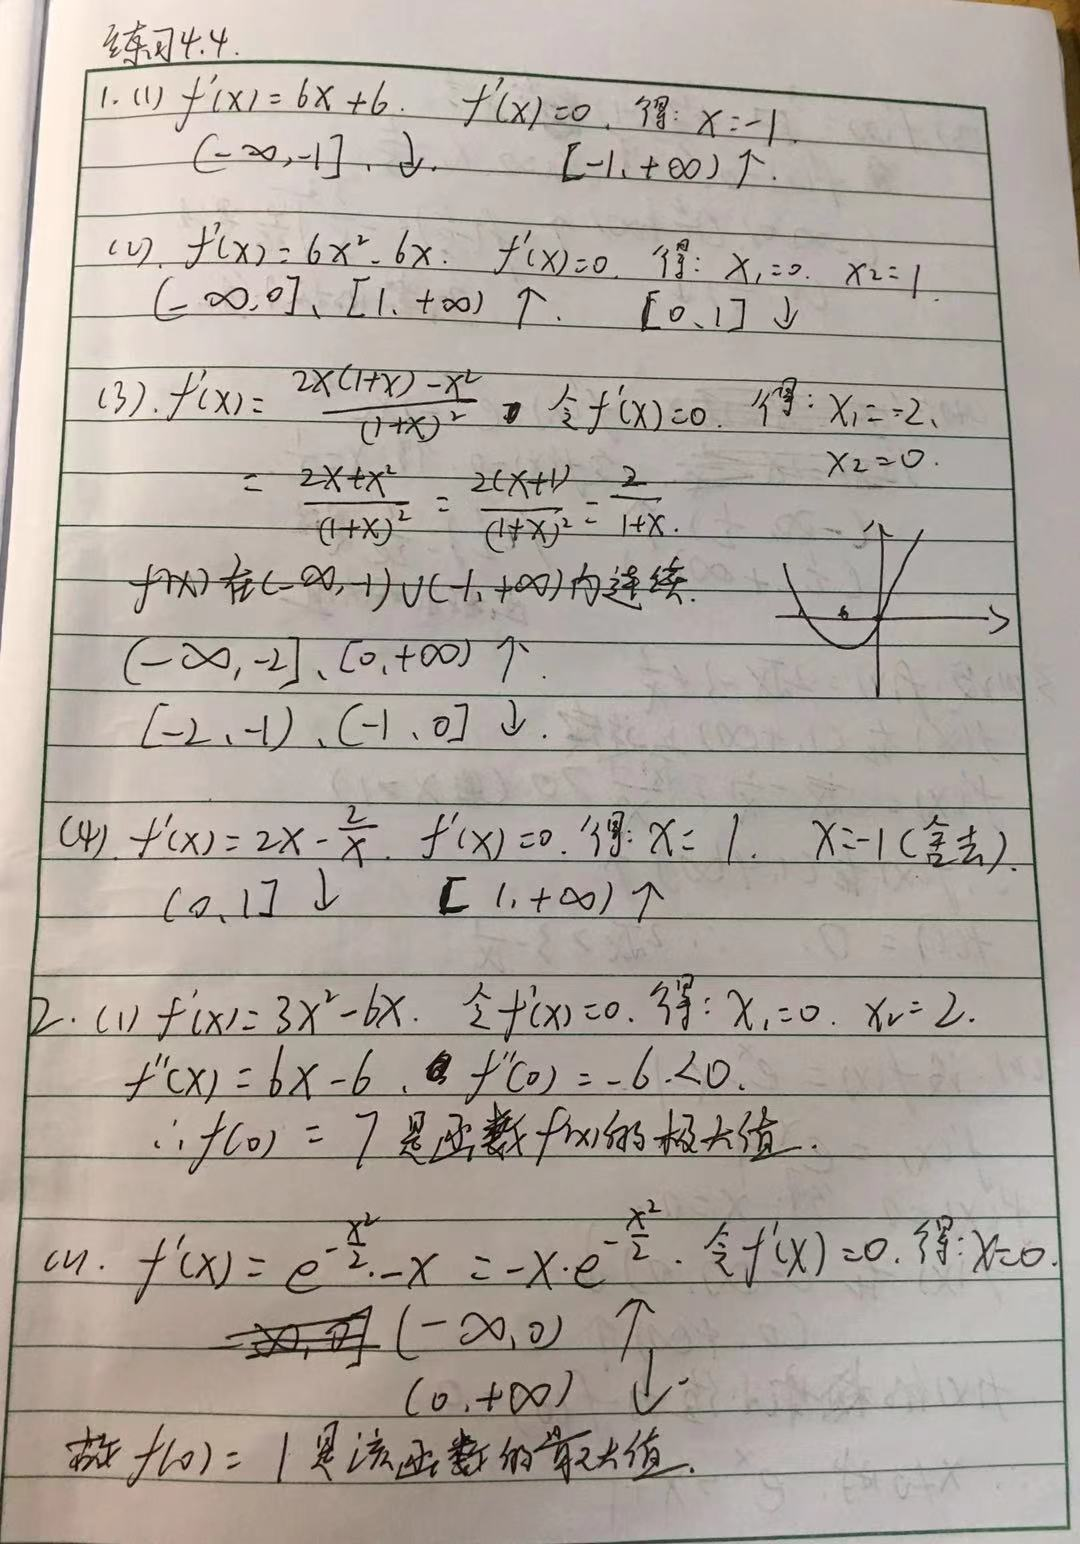 练习4.4.
1. (1) f'(x)=6x+6. f'(x)=0. 得: x=-1.
(-∞,-1]. ↓. [-1,+∞) ↑.
(2). f'(x)=6x²-6x. f'(x)=0. 得: x₁=0. x₂=1.
(-∞,0]、[1,+∞) ↑. [0,1] ↓
(3). f'(x)= (2x(1+x)-x²)/(1+x)² 令f'(x)=0. 得: x₁=-2、
x₂=0.
= (2x+x²)/(1+x)² = (2(x+1))/(1+x)² = 2/(1+x).
f(x)在(-∞,-1)∪(-1,+∞)内连续.
(-∞,-2]、[0,+∞) ↑.
[-2,-1)、(-1,0] ↓.
(4). f'(x)=2x-2/x. f'(x)=0. 得: x=1. x=-1(舍去).
(0,1] ↓ [1,+∞) ↑
2. (1) f'(x)=3x²-6x. 令f'(x)=0. 得: x₁=0. x₂=2.
f''(x)=6x-6. f''(0)=-6<0.
∴f(0)=7是函数f(x)的极大值.
(2). f'(x)=e^(-x²/2)·-x=-x·e^(-x²/2). 令f'(x)=0. 得: x=0.
-∞,0] (-∞,0) ↑
(0,+∞) ↓.
故f(0)=1是该函数的最大值.